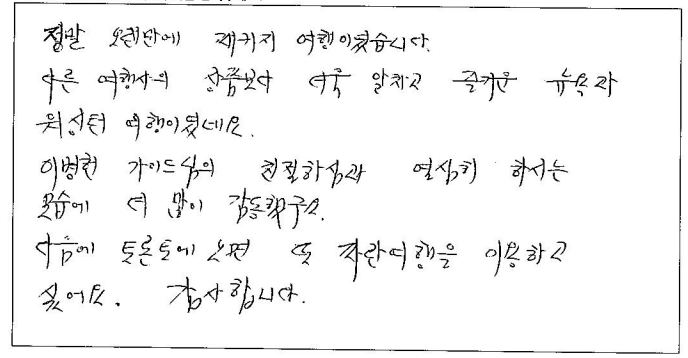 정말 오랜만에 패키지 여행이였습니다.
다른 여행사의 상품보다 더욱 알차고 즐거운 뉴욕과
워싱턴 여행이였네요.
이병헌 가이드님의 친절하심과 열심히 하시는
모습에 더 많이 감동했구요.
다음에 토론토에 오면 또 파란여행을 이용하고
싶어요. 감사합니다.